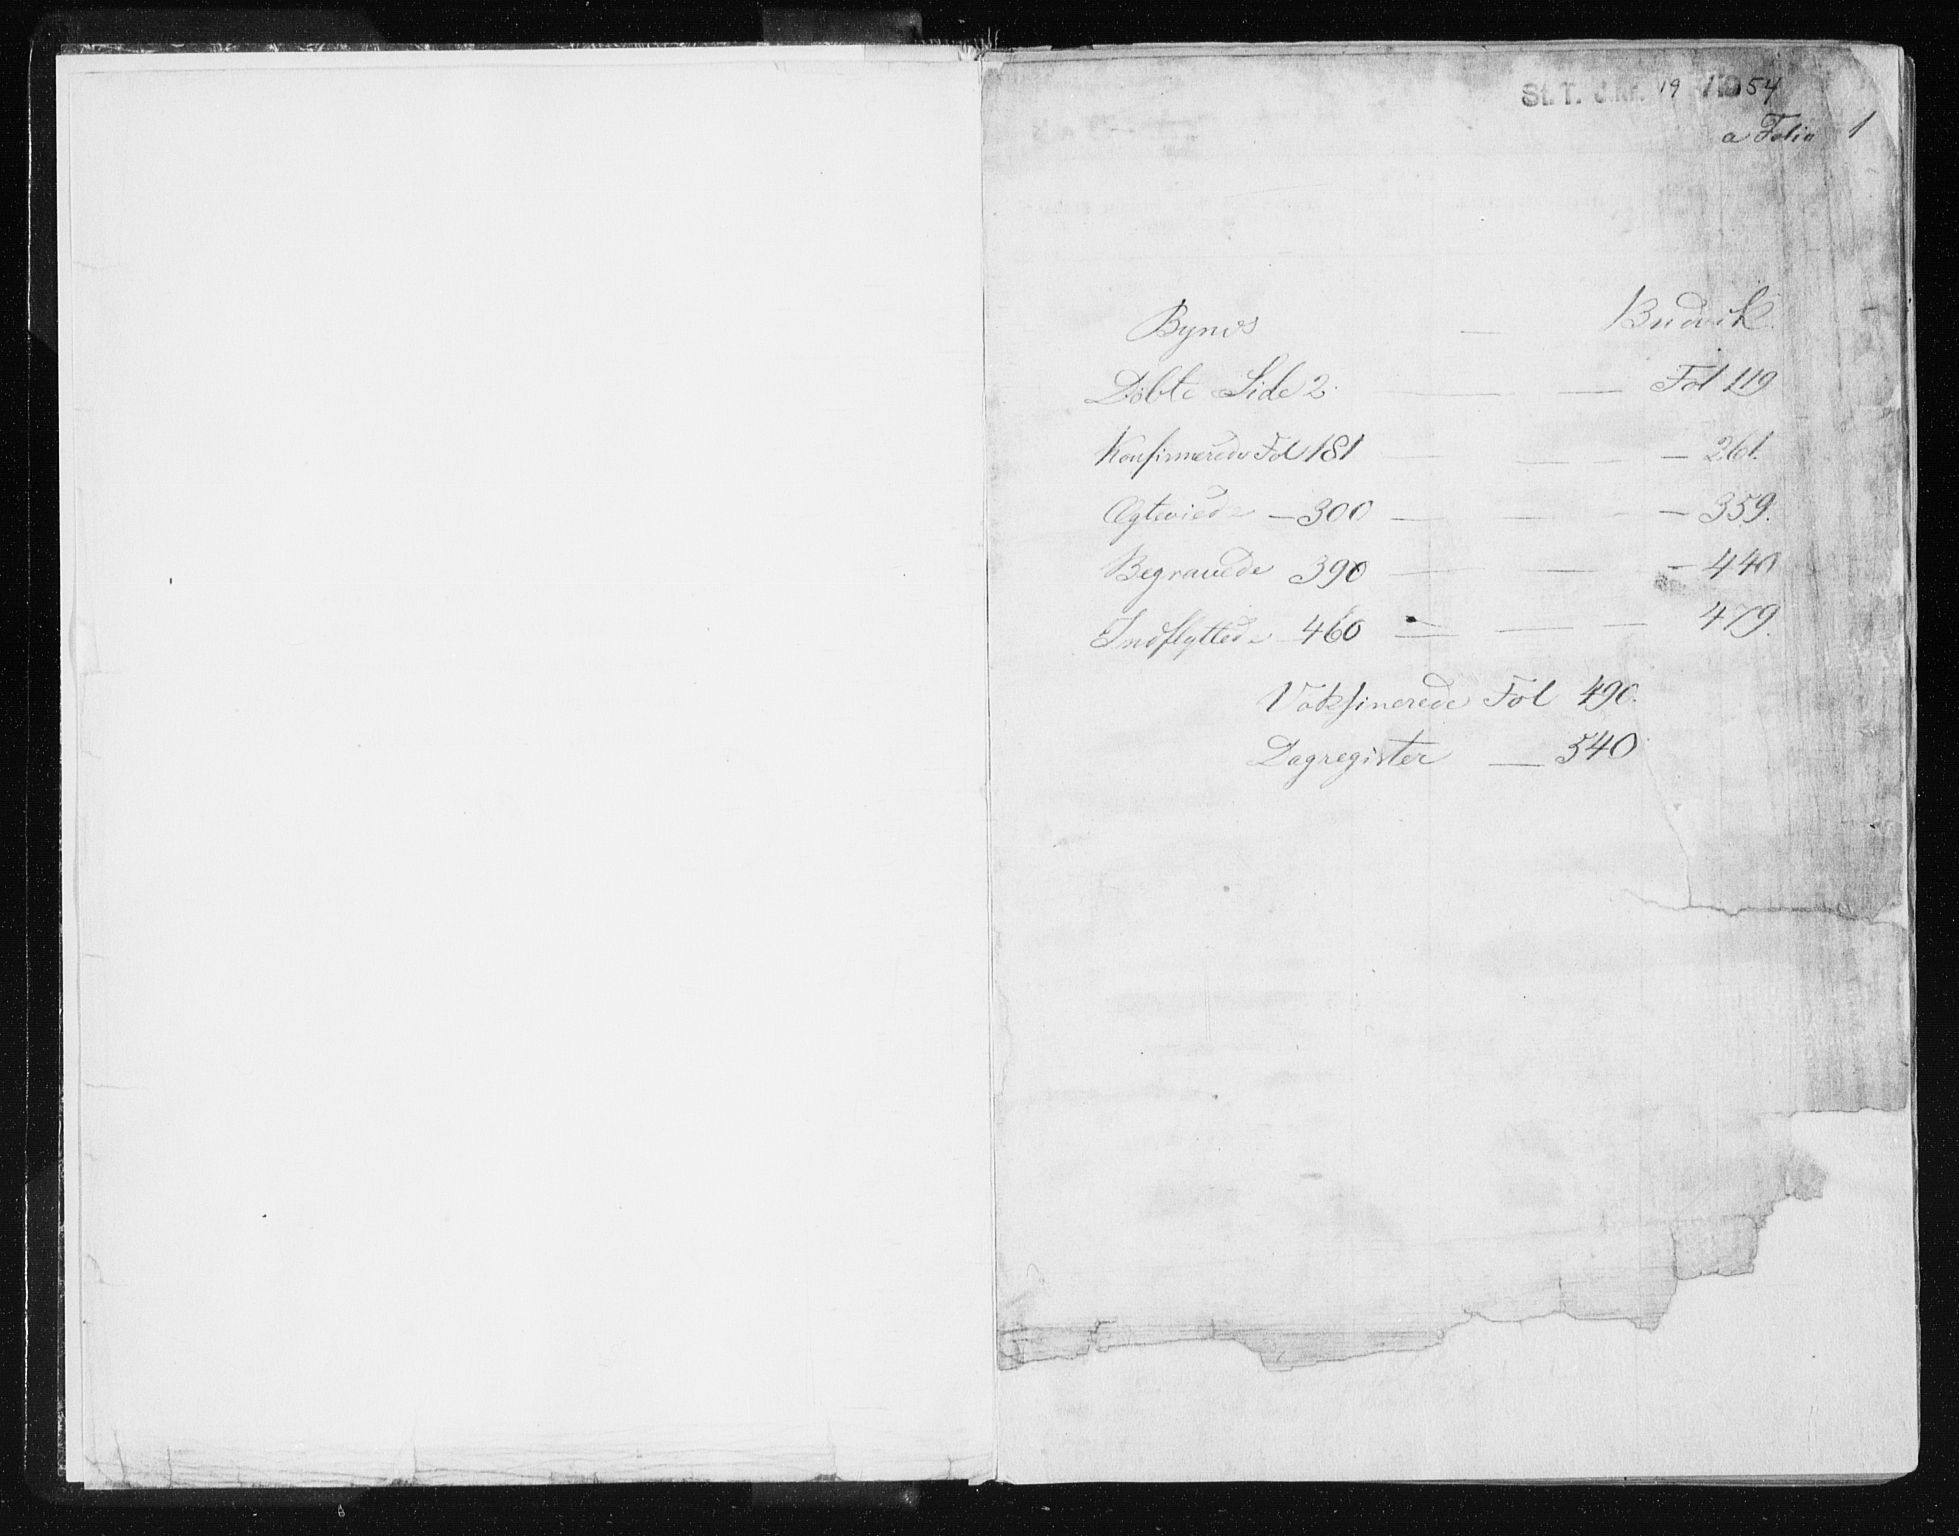 St. T. J.nr. 19 /1954
a Folio 1
Bynes — Budvik.
Döbte Side 2. — — Fol 119
Konfirmerede Fol 181 — — — 261.
Ægteviede — 300 — — — 359.
Begravede 390 — — — 440
Indflyttede — 460 — — — 479.
Vaksinerede Fol 490.
Dagregister — 540